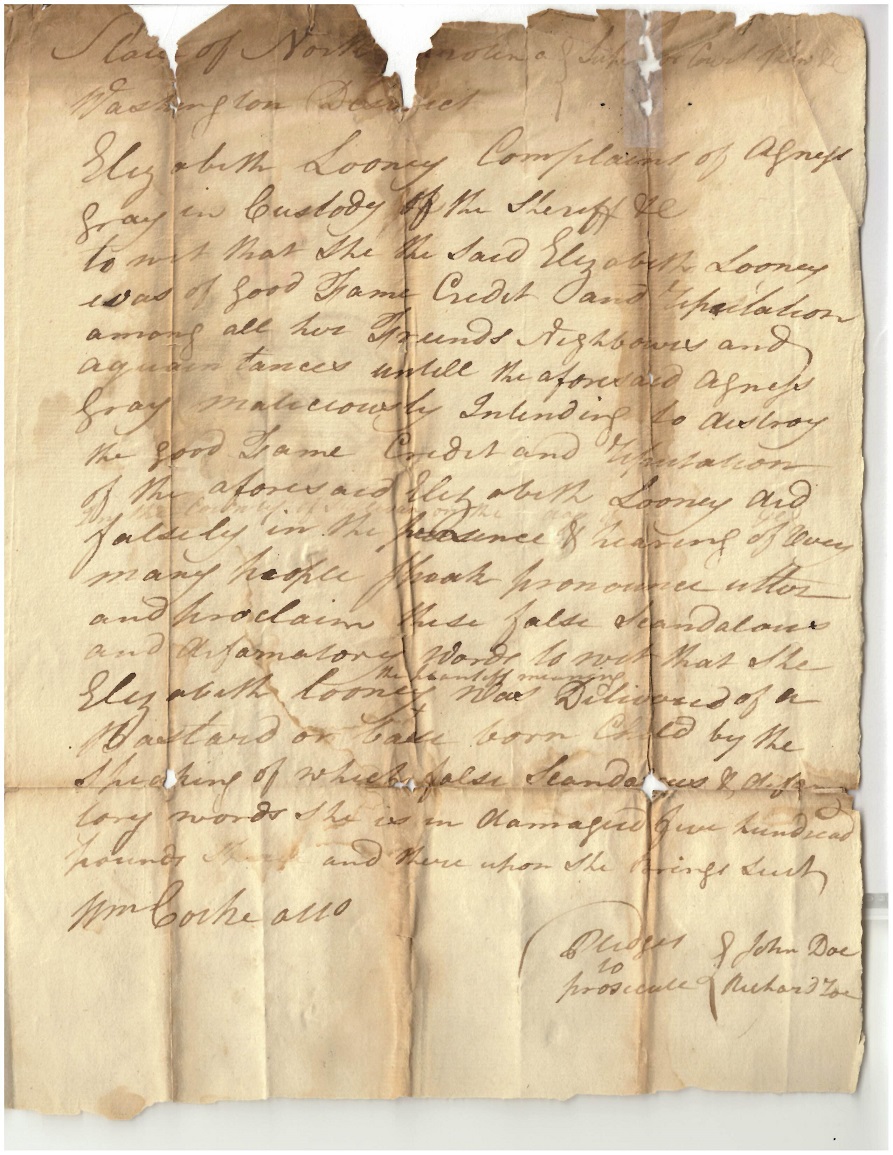 State of North Carolina } Superior Court of Law &c
Washington District
Elizabeth Looney Complains of Agness
Gray in Custody of the Sheriff &c
to wit that She the Said Elizabeth Looney
was of good Fame Credit and Reputation
among all her Freinds Nighbours and
aquaintances untill the aforesaid Agness
Gray maliciously Intending to destroy
the good Fame Credit and Reputation
of the aforesaid Elizabeth Looney did
in the County of on the
falsely in the presence & hearing of
many people Speak pronounce utter
and proclaim these false Scandalous
and defamatory words to wit that She
the plantiff meaning
Elizabeth Looney was Delivered of a
Bastard or base born Child by the
Speaking of which false Scandalous & defam
tory words She is in damaged five hundred
pounds and there upon She brings Suit
Wm Cocke atto
Pledges } John Doe
to
prosecute } Richard Roe